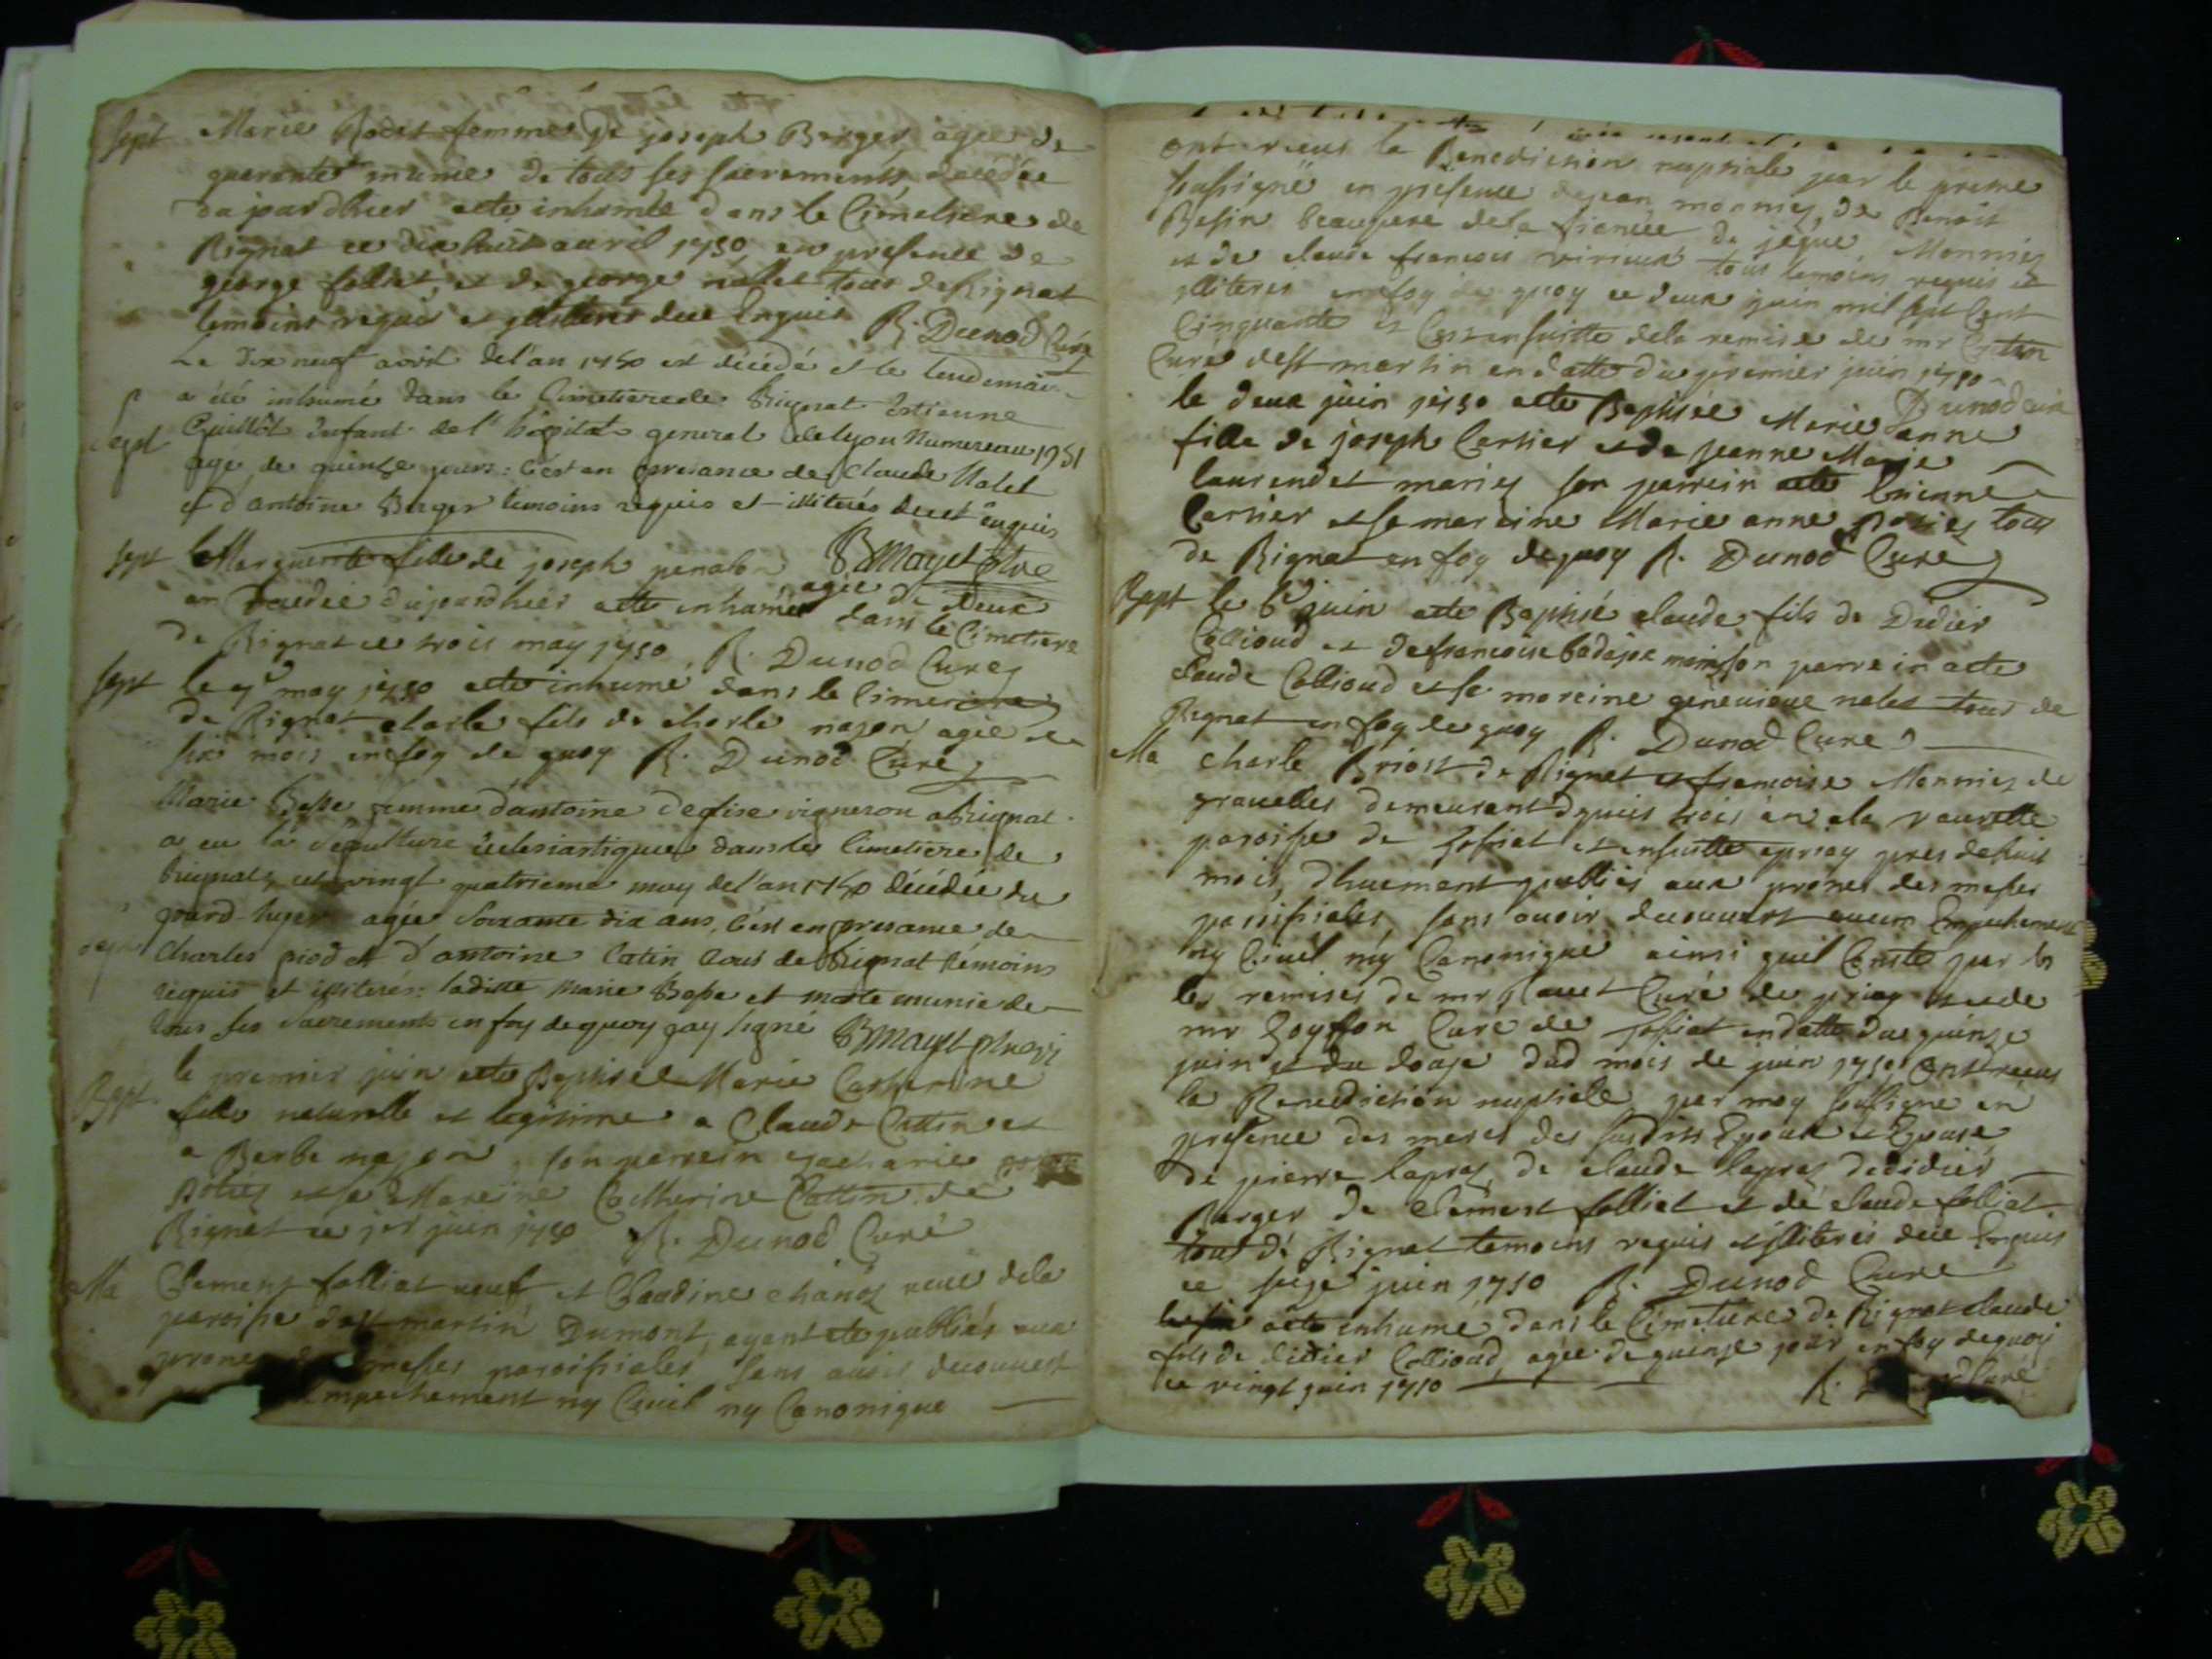 Sept Marie Rodet femme de joseph Berger agée de
quarante munie de tous ses sacrements decedée
dajourdhier a ete inhumée dans le Cimetiere de
Rignat ce dix huit avril 1750 en presence de
george folliet, et de george nallet tous de Rignat
temoins requis et illiteres due Enquis R. Dunod Curé
Le dix neuf avril de l'an 1750 est décédé et le lendemain
a été inhumé dans le Cimetiere de Rignat Estienne
Sept Guillot Enfant de l'hôpital general de lyon Numereau 1951
agé de quinze jours: C'est en presance de Claude Nalet
et d'antoine Berger temoins requis et illiterés de ce enquis
BMayet ptre
Sept Marguerite fille de joseph agée de deux
an decedée dujourdhier a ete inhumée dans le Cimetiere
de Rignat ce trois may 1750 R. Dunod Cure
Sept le may 1750 a ete inhumé dans le Cimetiere
de Rignat charle fils de charle mazon agée de
six mois en foy de quoy R. Dunod Cure
Marie Besse femme d'antoine deglise vigneron a Rignat
a eu la sépulture éclesiastique dans le Cimetiere de
Rignat, ce vingt quatrieme may de l'an 1750 décédée du
jourd-hyer agée Soixante dix ans, C'est en presance de
sept Charles piodet d'antoine Catin tous de Rignat témoins
requis et illiterés: laditte Marie Besse et morte munie de
tous ses sacrements en foy de quoy jay signé BMayet
Bapt le premier juin a ete Baptisée Marie Catherine
fille naturelle et legitime a Claude Cattin et
a Barbe mazon, son parrein zacharie
et sa Mareine Catherine Cattin de
Rignat ce 1er juin 1750 R. Dunod Curé
Ma Clement folliet veuf et Claudine chanoz veue de la
paroisse de st martin Dumont, ayant ete publiés aux
prones messes paroissiales sans avoir decouvert
Empechement ny Civil ny Canonique
ont receus la Benediction nuptiale par le
soussigné en presence de jean monnier, de Benoit
Besin beaupere de la fiancée de Monnier
et de claude francois tous temoins requis et
illiteres en foy de quoy ce deux juin mil sept Cent
Cinquante et Cest ensuitte de la remise de mr Cattin
Curé de st martin en datte du premier juin 1750
Dunod cure
le deux juin 1750 a ete Baptisée Marie anne
fille de joseph Cartier et de jeanne Marie
laurendet mariez son parrein a ete Etienne
Cartier et sa mareine Marie anne tous
de Rignat en foy de quoy R. Dunod Cure
Bapt le 6e juin a ete Baptisé claude fils de Didier
Collioud et de francoise son parrein a ete
claude Collioud et sa mareine genevieve nalet tous de
Rignat en foy de quoy R. Dunod Cure
Ma Charle Briost de Rignat et francoise Monnier de
gravelles demeurant depuis trois an a la vavrette
paroisse de tossiat et ensuitte a priay pres de huit
mois, dhuement publiés aux prones des messes
paroissiales, sans avoir decouvert aucun Empechement
ny Civil ny Canonique ainsi quil Conste par les
les remises de mr Curé de priay et de
mr goyffon Curé de tossiat en datte du quinze
juin et du douze dud mois de juin 1750 Ont receus
la Benediction nuptiale par moy soussigne en
presence des meres des susdits Epoux et Epouse
de pierre lapraz, de claude lapraz de didier
Berger de Clement folliet et de claude folliet
tous de Rignat temoins requis et illiteres due Enquis
ce seize juin 1750 R. Dunod Cure
a ete inhumé dans le Cimetiere de Rignat claude
fils de didier Collioud, agée de quinze jour en foy de quoy
ce vingt juin 1750 R. Curé